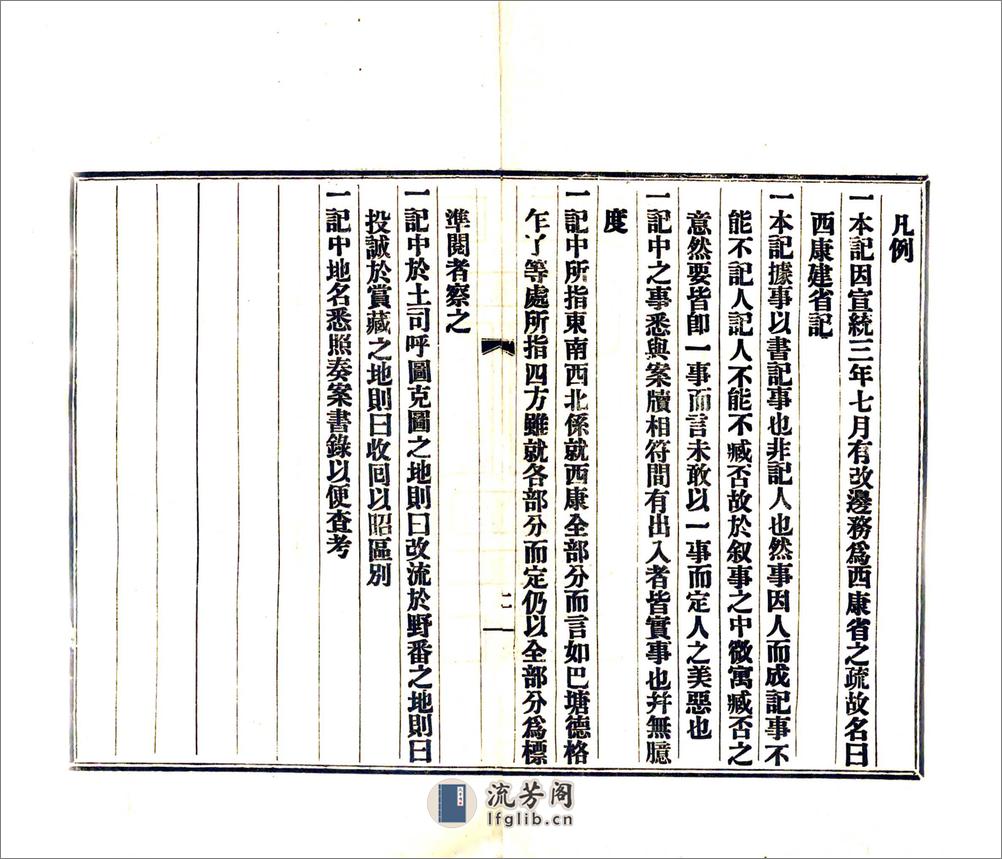 凡例
一本記因宣統三年七月有改邊務爲西康省之疏故名曰
西康建省記
一本記據事以書記事也非記人也然事因人而成記事不
能不記人記人不能不臧否故於叙事之中微寓臧否之
意然要皆卽一事而言未敢以一事而定人之美惡也
一記中之事悉與案牘相符間有出入者皆實事也幷無臆
度
一記中所指東南西北係就西康全部分而言如巴塘德格
乍丫等處所指四方雖就各部分而定仍以全部分爲標
二
準閱者察之
一記中於土司呼圖克圖之地則曰改流於野番之地則曰
投誠於賞藏之地則曰收回以昭區別
一記中地名悉照奏案書錄以便查考
流芳阁
lfglib.cn